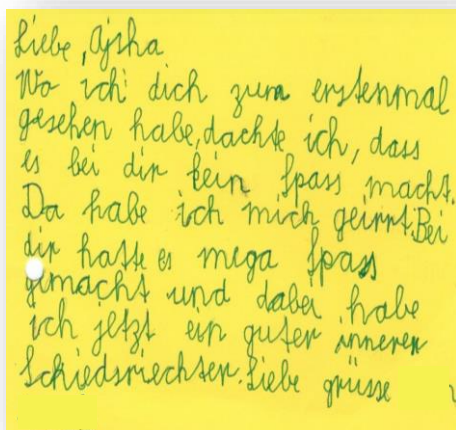 Liebe, Ajsha
Wo ich dich zum erstenmal
gesehen habe, dachte ich, dass
es bei dir kein spass macht.
Da habe ich mich geirrt. Bei
dir hatte es mega spass
gemacht und dabei habe
ich jetzt ein guter inneren
Schiedsriechter. Liebe grüsse